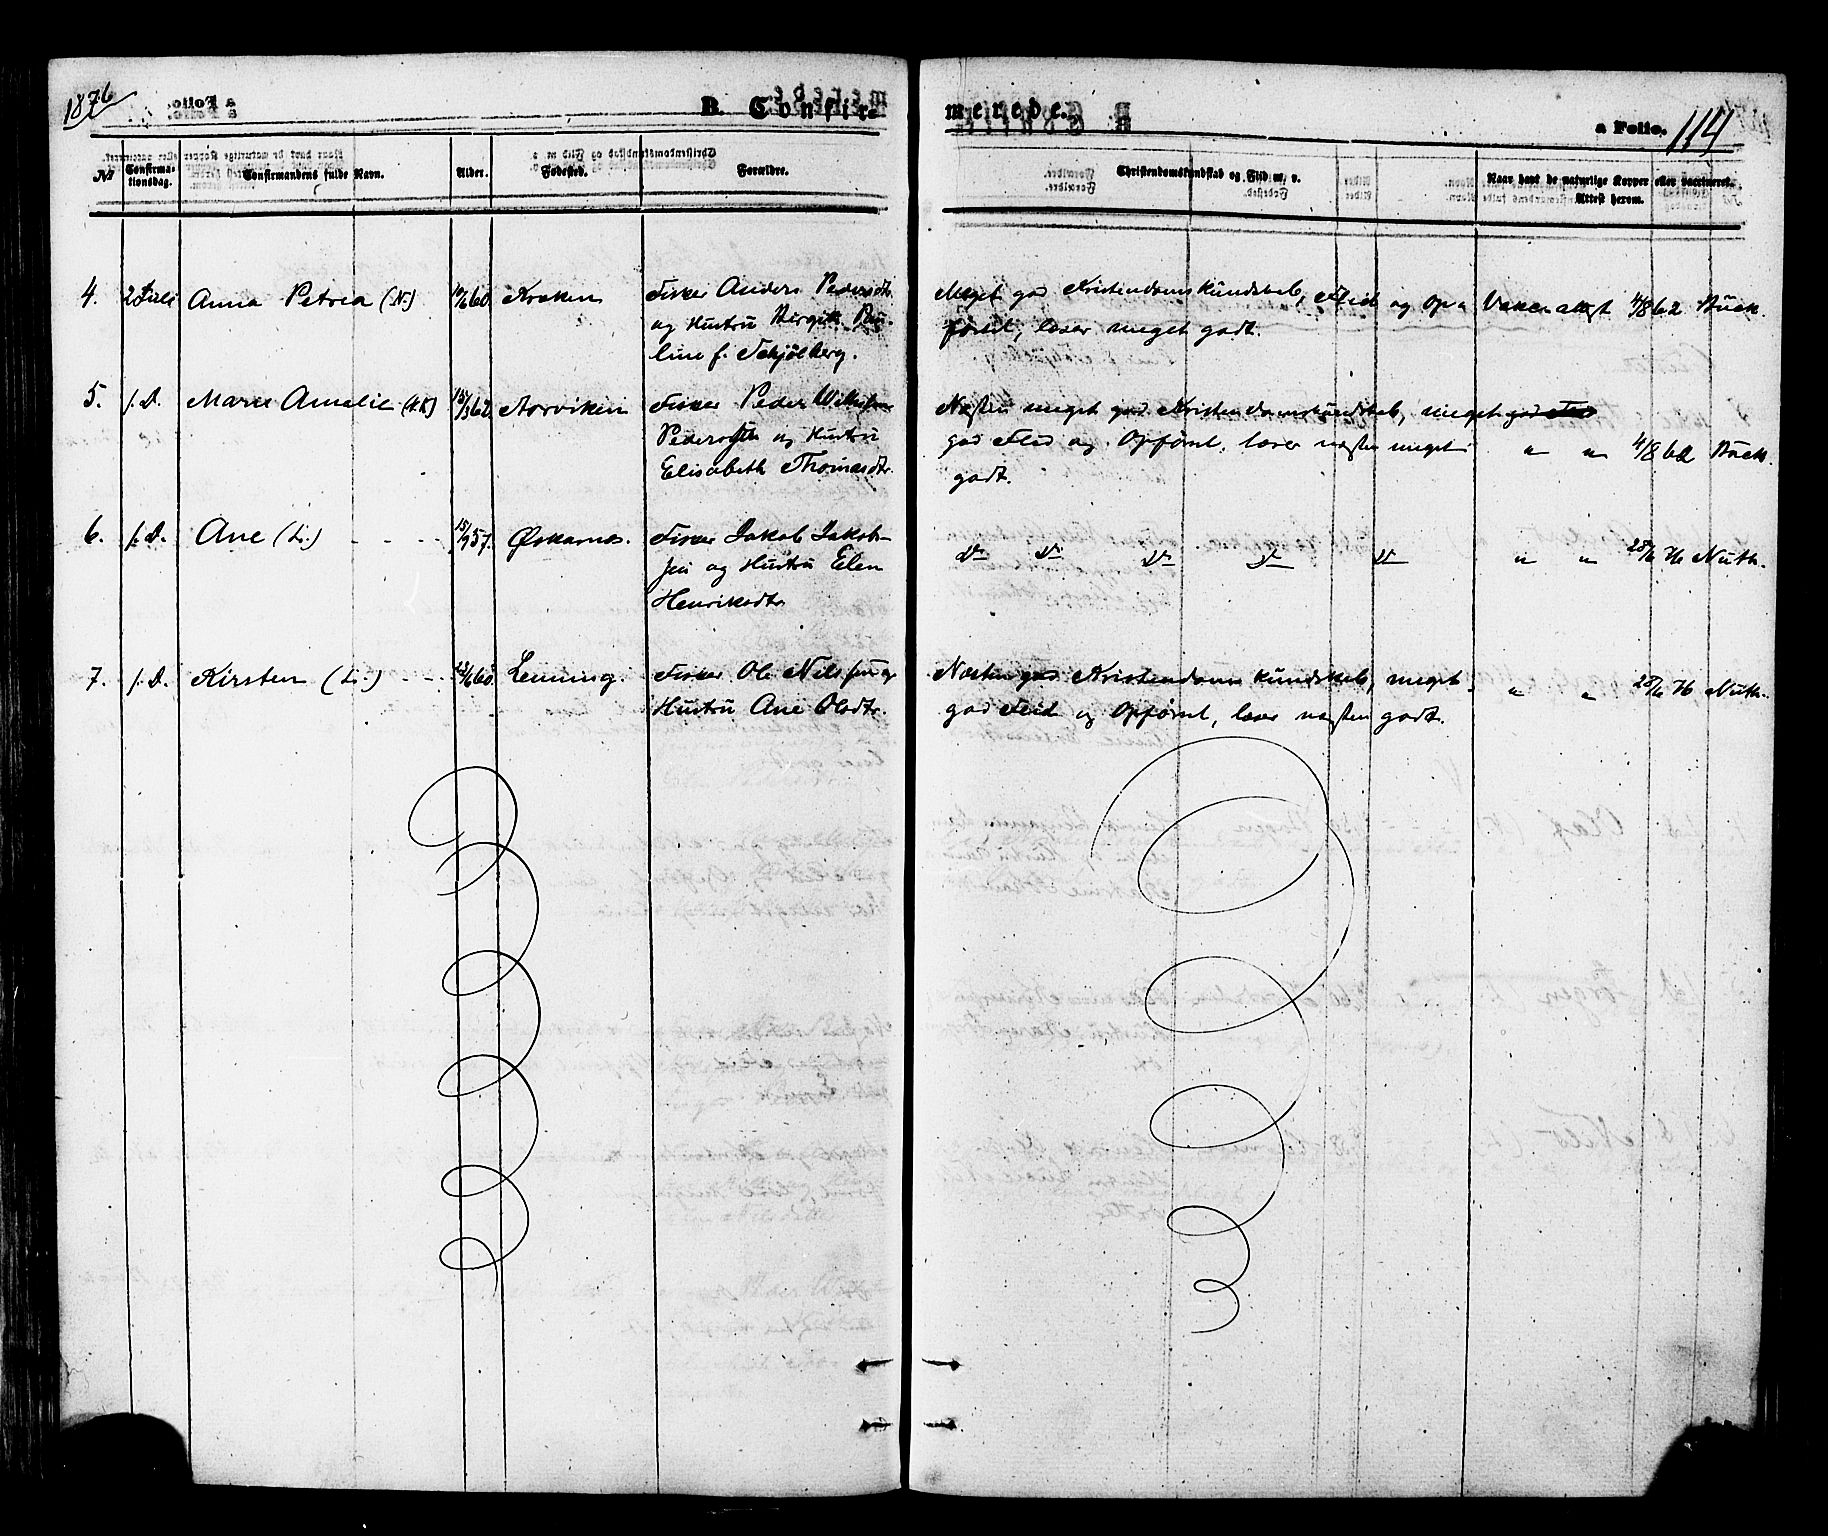 1876
B. Confir-
merede.
a Folio. 114
№
Confirma-
tionsdag.
Confirmandens fulde Navn.
Alder.
Fødested.
Forældre.
Christendomskundskab og Flid m. v.
Naar havt de naturlige Kopper eller vaccineret.
Attest herom.
4. 2 Juli Anna Petrea (N.) 60 Kraken Fisker Anders Pedersdtr
og Hustru Birgith Pau-
line f. Schjölberg.
Meget god Kristendomskundskab, Flid og Op-
førsel, læser meget godt.
Vakc. attest 4/8 62 Buck.
5. s. D. Maren Amalie (N.K) 15/3 62 Aarviken Fisker Peder Wilhelm
Pedersen og Hustru
Elisabeth Thomasdtr.
Næsten meget god Kristendomskundskab, meget
god Flid og Opførsel, læser næsten meget
godt.
" " 4/8 62 Buck.
6. s. D. Ane (L.) - - - 15/9 57. Øskarnes. Fisker Jakob Jakob-
sen og Hustru Elen
Henriksdtr.
D° D° D° D° D° " " 28/6 76 Nuth.
7. s. D. Kirsten (L.) - - - 60 Lenning. Fisker Ole Nilssen og
Hustru Ane Olsdtr.
Næsten god Kristendomskundskab, meget
god Flid og Opførsel, læser næsten godt.
" " 28/6 76 Nuth.